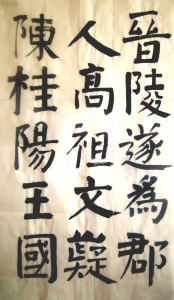 晉陵遂為郡
人高祖文凝
陳桂陽王國